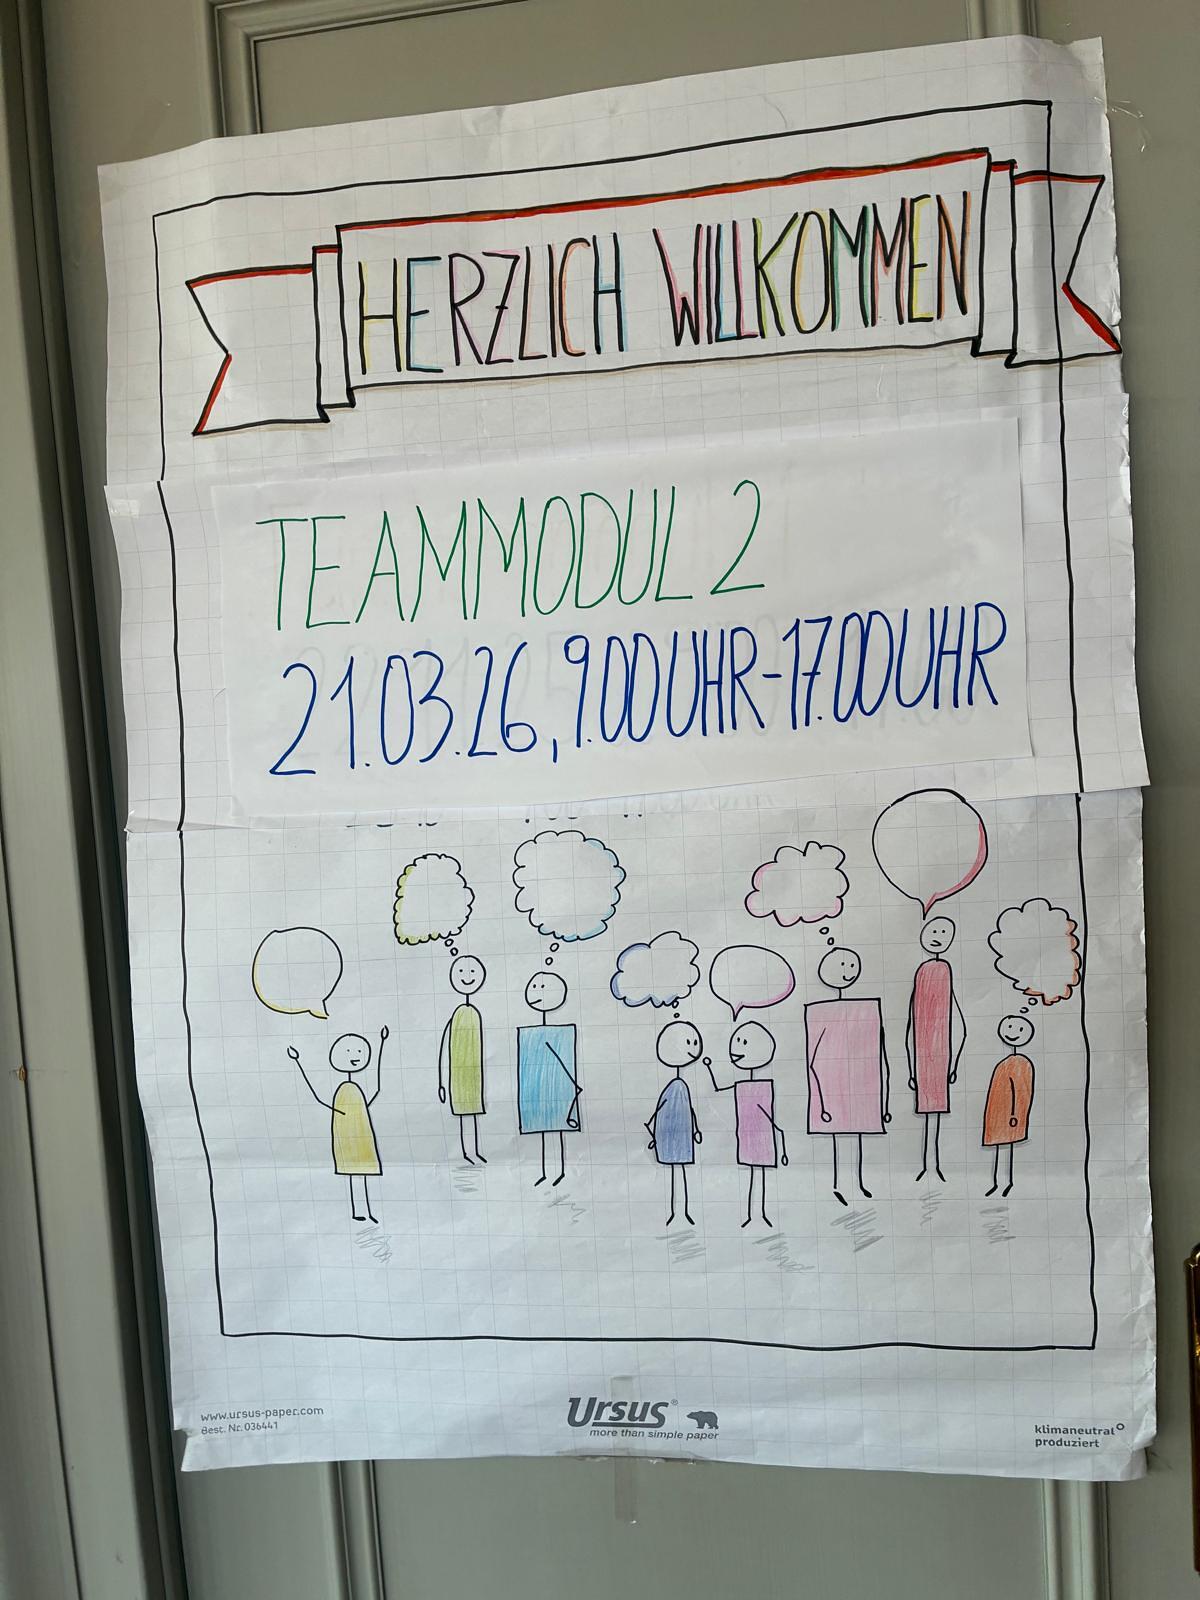 HERZLICH WILLKOMMEN
TEAMMODUL 2
21.03.26, 9.00 UHR - 17.00 UHR
www.ursus-paper.com
Best. Nr. 036441
Ursus®
more than simple paper
klimaneutral
produziert